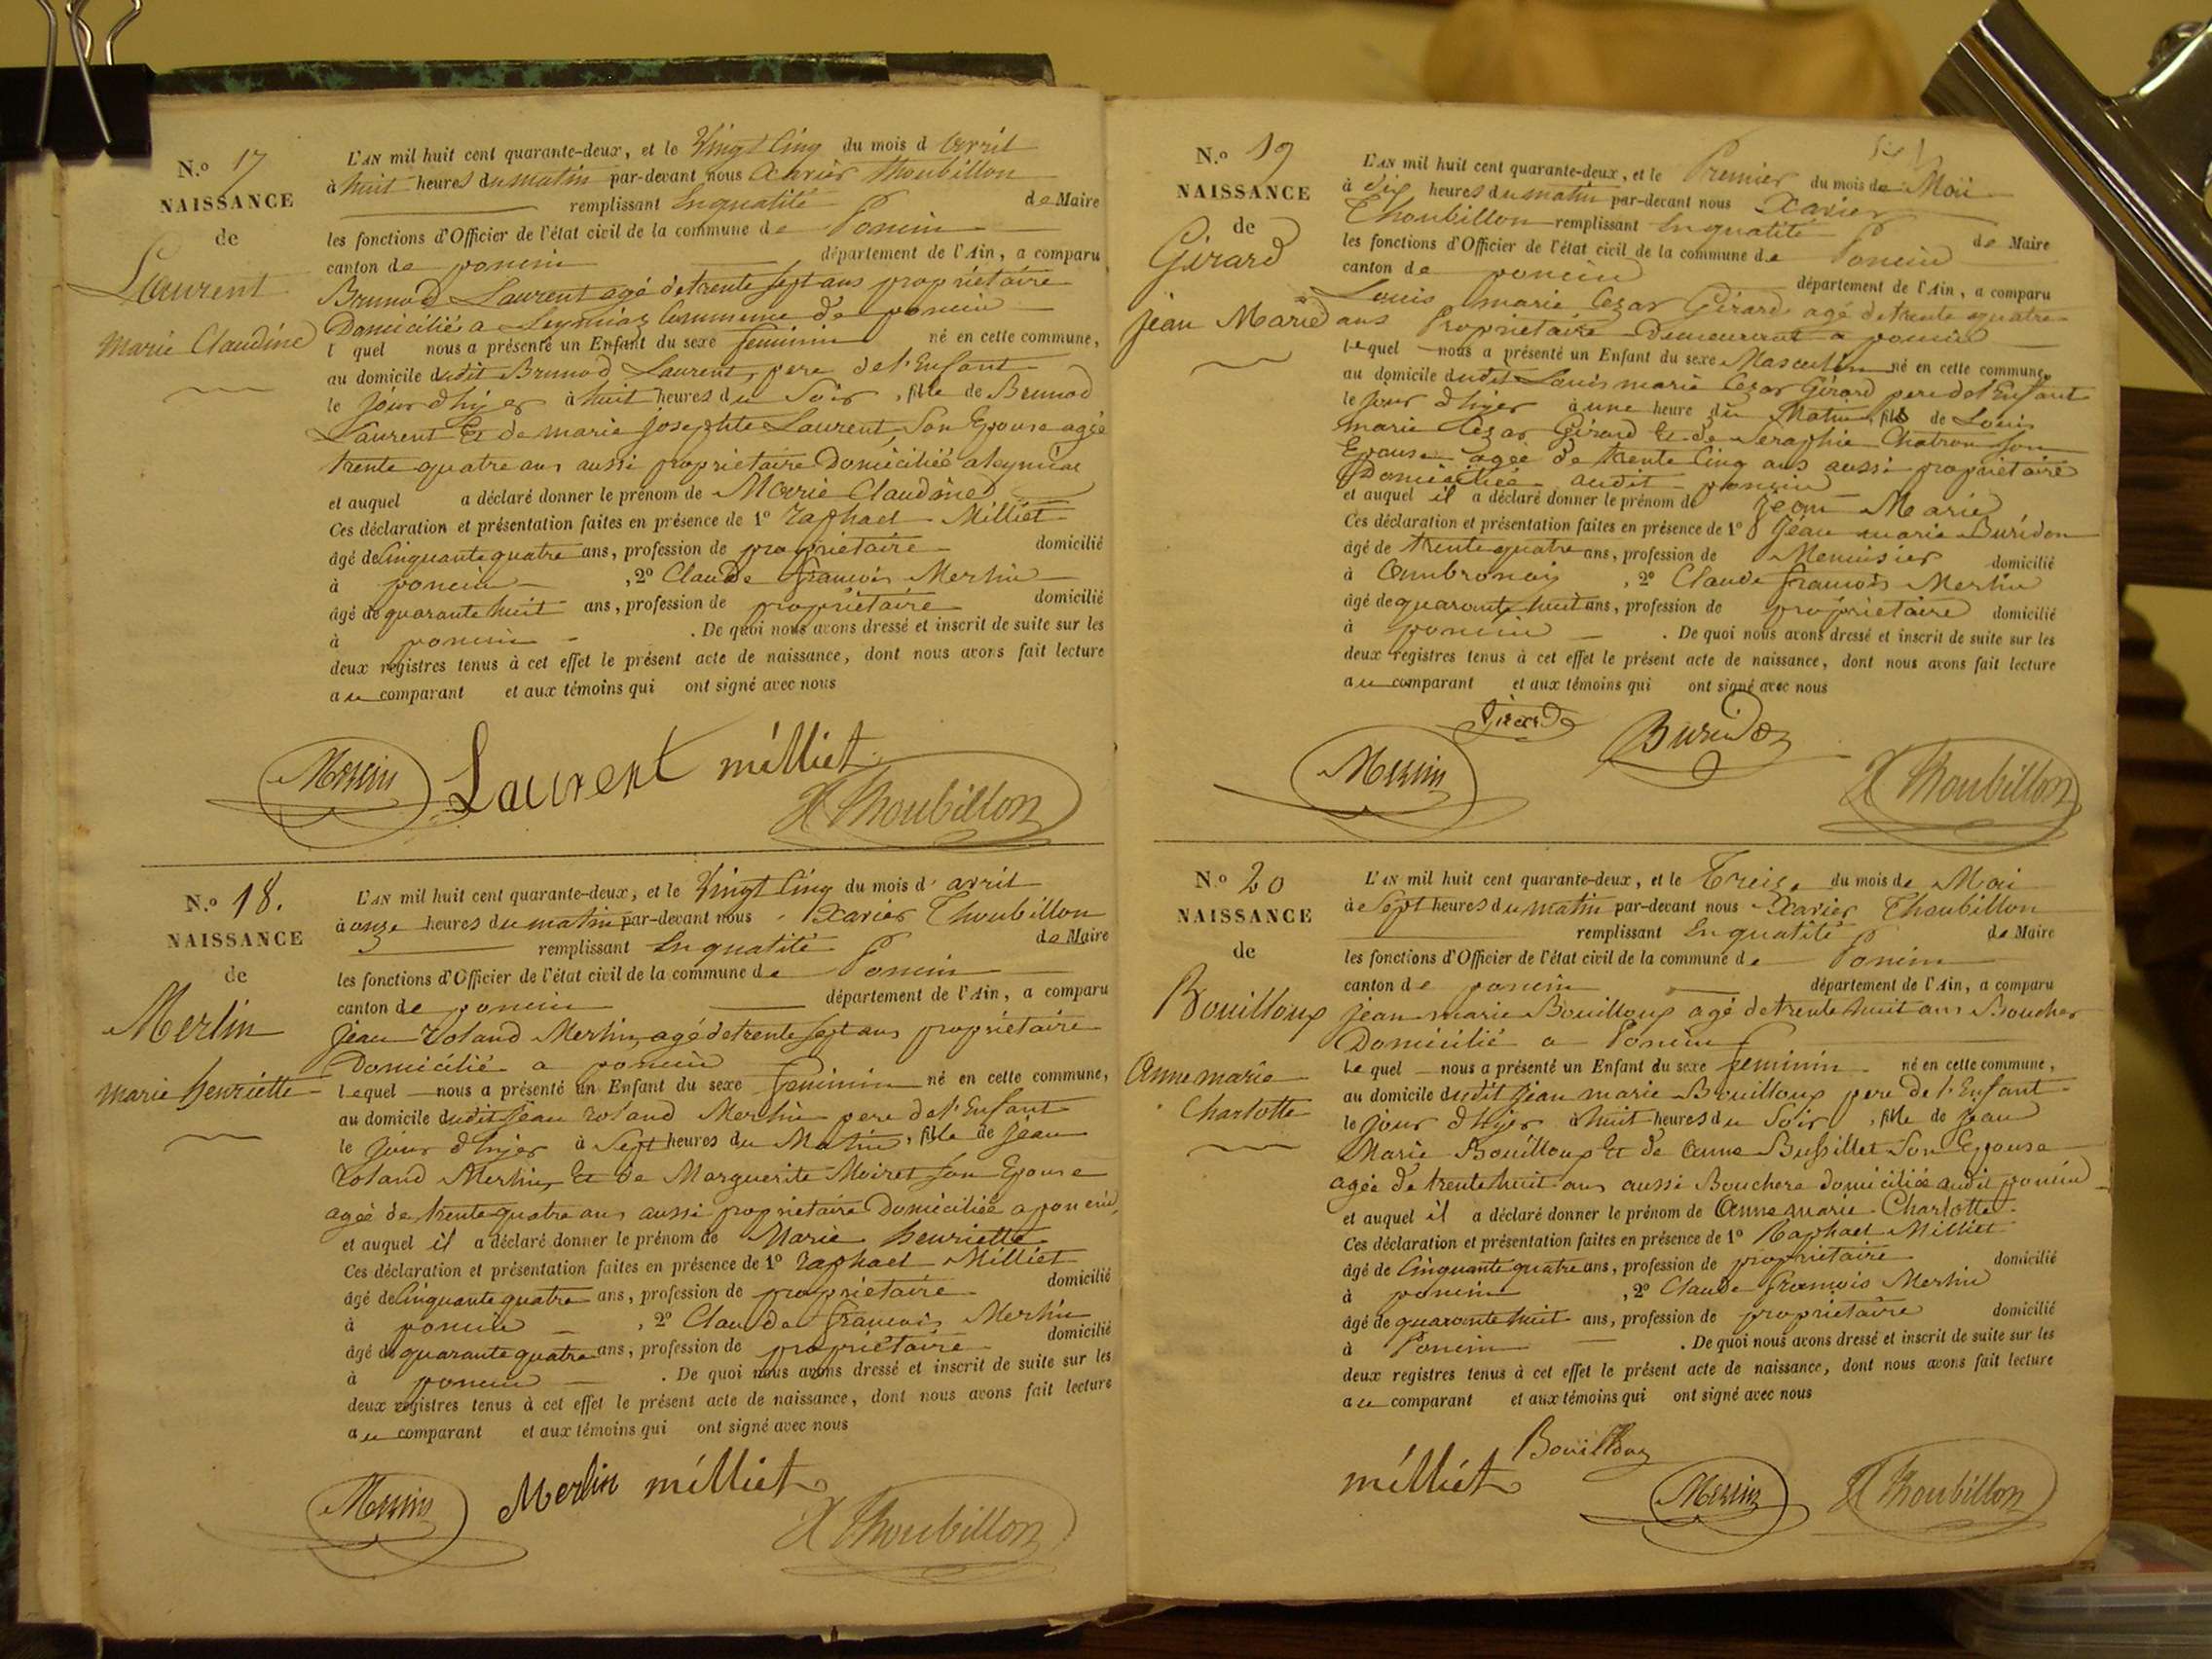 N.º 17
NAISSANCE
de
Laurent
Marie Claudine
L'AN mil huit cent quarante-deux, et le Vingt Cinq du mois d avril
à huit heures du matin par-devant nous Xavier Thoubillon
remplissant En qualité de Maire
les fonctions d'Officier de l'état civil de la commune de Poncin
canton de poncin département de l'Ain, a comparu
Brunod Laurent agé de trente sept ans propriétaire
Domicilié a Leymiaz Commune de poncin
l quel nous a présenté un Enfant du sexe feminin né en cette commune,
au domicile dudit Brunod Laurent, pere de l'Enfant
le jour d'hyer à huit heures du Soir, fille de Brunod
Laurent Et de marie josephte Laurent, Son Epouse agée
trente quatre ans aussi propriétaire Domiciliée a leymiaz
et auquel a déclaré donner le prénom de Marie Claudine
Ces déclaration et présentation faites en présence de 1º raphael Milliet
âgé de Cinquante quatre ans, profession de propriétaire domicilié
à poncin , 2º Claude françois Merlin
âgé de quarante huit ans, profession de propriétaire domicilié
à poncin . De quoi nous avons dressé et inscrit de suite sur les
deux registres tenus à cet effet le présent acte de naissance, dont nous avons fait lecture
au comparant et aux témoins qui ont signé avec nous
Merlin Laurent milliet
X Thoubillon
N.º 18.
NAISSANCE
de
Merlin
marie henriette
L'AN mil huit cent quarante-deux, et le Vingt Cinq du mois d' avril
à onze heures du matin par-devant nous Xavier Thoubillon
remplissant En qualité de Maire
les fonctions d'Officier de l'état civil de la commune de Poncin
canton de poncin département de l'Ain, a comparu
jean roland Merlin, agé de trente sept ans propriétaire
Domicilié a poncin
lequel nous a présenté un Enfant du sexe feminin né en cette commune,
au domicile dudit jean roland Merlin pere de l'Enfant
le jour d'hyer à Sept heures du Matin, fille de jean
roland Merlin, Et de Marguerite Moiret Son Epouse
agée de trente quatre ans aussi propriétaire Domiciliée a poncin,
et auquel il a déclaré donner le prénom de Marie henriette
Ces déclaration et présentation faites en présence de 1º raphael Milliet
âgé de Cinquante quatre ans, profession de propriétaire domicilié
à poncin , 2º Claude françois Merlin
âgé de quarante quatre ans, profession de propriétaire domicilié
à poncin . De quoi nous avons dressé et inscrit de suite sur les
deux registres tenus à cet effet le présent acte de naissance, dont nous avons fait lecture
au comparant et aux témoins qui ont signé avec nous
Merlin Merlin milliet
X Thoubillon
N.º 19
NAISSANCE
de
Girard
jean Marie
L'AN mil huit cent quarante-deux, et le Premier du mois de Mai
à dix heures du matin par-devant nous Xavier
Thoubillon remplissant En qualité de Maire
les fonctions d'Officier de l'état civil de la commune de Poncin
canton de poncin département de l'Ain, a comparu
Louis marie Cezar Girard agé de trente quatre
ans Propriétaire Demeurant a poncin
lequel nous a présenté un Enfant du sexe Masculin né en cette commune,
au domicile dudit Louis marie Cezar Girard pere de l'Enfant
le jour d'hyer à une heure du Matin, fils de Louis
marie Cezar Girard Et de Seraphie Chatron Son
Epouse agée de trente Cinq ans aussi propriétaire
Domiciliée audit poncin
et auquel il a déclaré donner le prénom de Jean Marie
Ces déclaration et présentation faites en présence de 1º Jean marie Buridon
âgé de trente quatre ans, profession de Menuisier domicilié
à Ambronay , 2º Claude françois Merlin
âgé de quarante huit ans, profession de propriétaire domicilié
à poncin . De quoi nous avons dressé et inscrit de suite sur les
deux registres tenus à cet effet le présent acte de naissance, dont nous avons fait lecture
au comparant et aux témoins qui ont signé avec nous
Girard Buridon
Merlin X Thoubillon
N.º 20
NAISSANCE
de
Bouilloux
Anne marie
Charlotte
L'AN mil huit cent quarante-deux, et le Treize du mois de Mai
à Sept heures du matin par-devant nous Xavier Thoubillon
remplissant En qualité de Maire
les fonctions d'Officier de l'état civil de la commune de Poncin
canton de poncin département de l'Ain, a comparu
jean marie Bouilloux agé de trente huit ans Boucher
Domicilié a Poncin
lequel nous a présenté un Enfant du sexe feminin né en cette commune,
au domicile dudit jean marie Bouilloux pere de l'Enfant
le jour d'hyer à huit heures du Soir, fille de Jean
Marie Bouilloux Et de Anne Bussillet Son Epouse
agée de trente huit ans aussi Bouchere domiciliée audit poncin
et auquel il a déclaré donner le prénom de Anne marie Charlotte
Ces déclaration et présentation faites en présence de 1º Raphael Milliet
âgé de Cinquante quatre ans, profession de propriétaire domicilié
à poncin , 2º Claude françois Merlin
âgé de quarante huit ans, profession de propriétaire domicilié
à Poncin . De quoi nous avons dressé et inscrit de suite sur les
deux registres tenus à cet effet le présent acte de naissance, dont nous avons fait lecture
au comparant et aux témoins qui ont signé avec nous
Bouilloux
milliet Merlin X Thoubillon